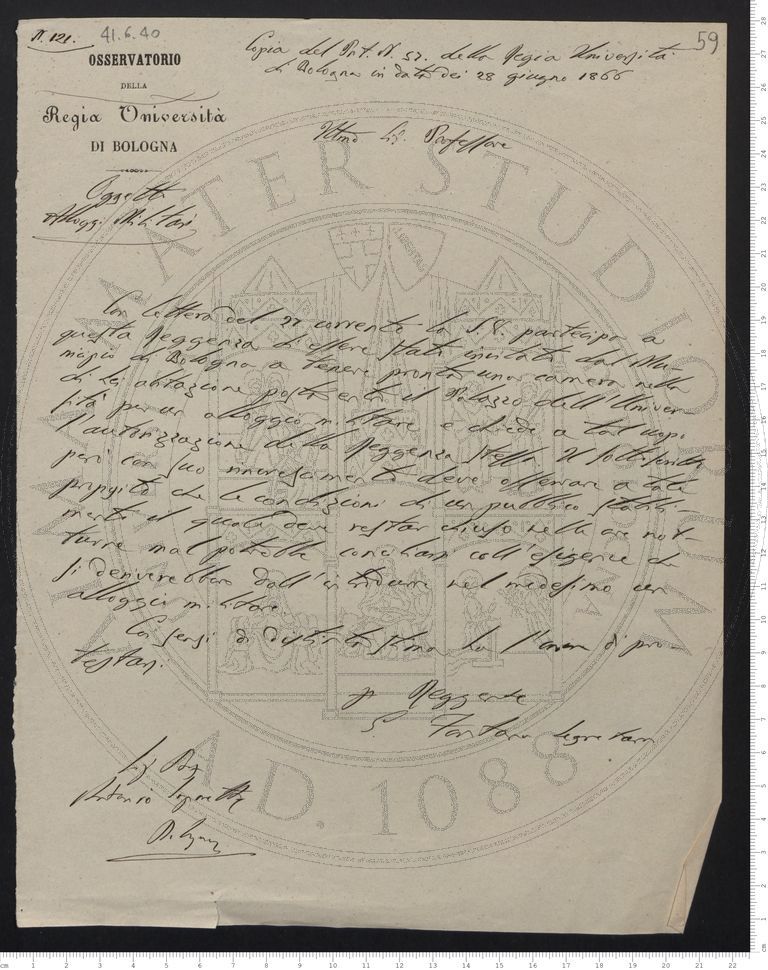 N. 121.
41.6.40
59
OSSERVATORIO
DELLA
Regia Università
DI BOLOGNA
Copia del Prt. N 57. della Regia Università
di Bologna in data dei 28 giugno 1866
Illmo Sig. Professore
Oggetto
Alloggi Militari
Con lettera del 27 corrente la S.V. partecipa a
questa Reggenza d'essere stata invitata dal Mu-
nicipio di Bologna a tenere pronta una camera nella
di Lei abitazione posta entro il Palazzo dell'Univer-
sità per un alloggio militare e chiede a tal uopo
l'autorizzazione della Reggenza stessa. Il sottoscritto
però con suo rincrescimento deve osservare a tale
proposito che le condizioni di un pubblico stabili-
mento il quale deve restar chiuso nelle ore not-
turne mal potrebbe conciliarsi coll'esigenze che
si deriverebbero dall'introdurre nel medesimo un
alloggio militare.
Coi sensi di distinta stima ha l'onore di pro-
testarsi.
Reggente
Fontana Segretario
Sig. Prof.
Antonio
Bologna
ALMA MATER STUDIORUM
A.D. 1088